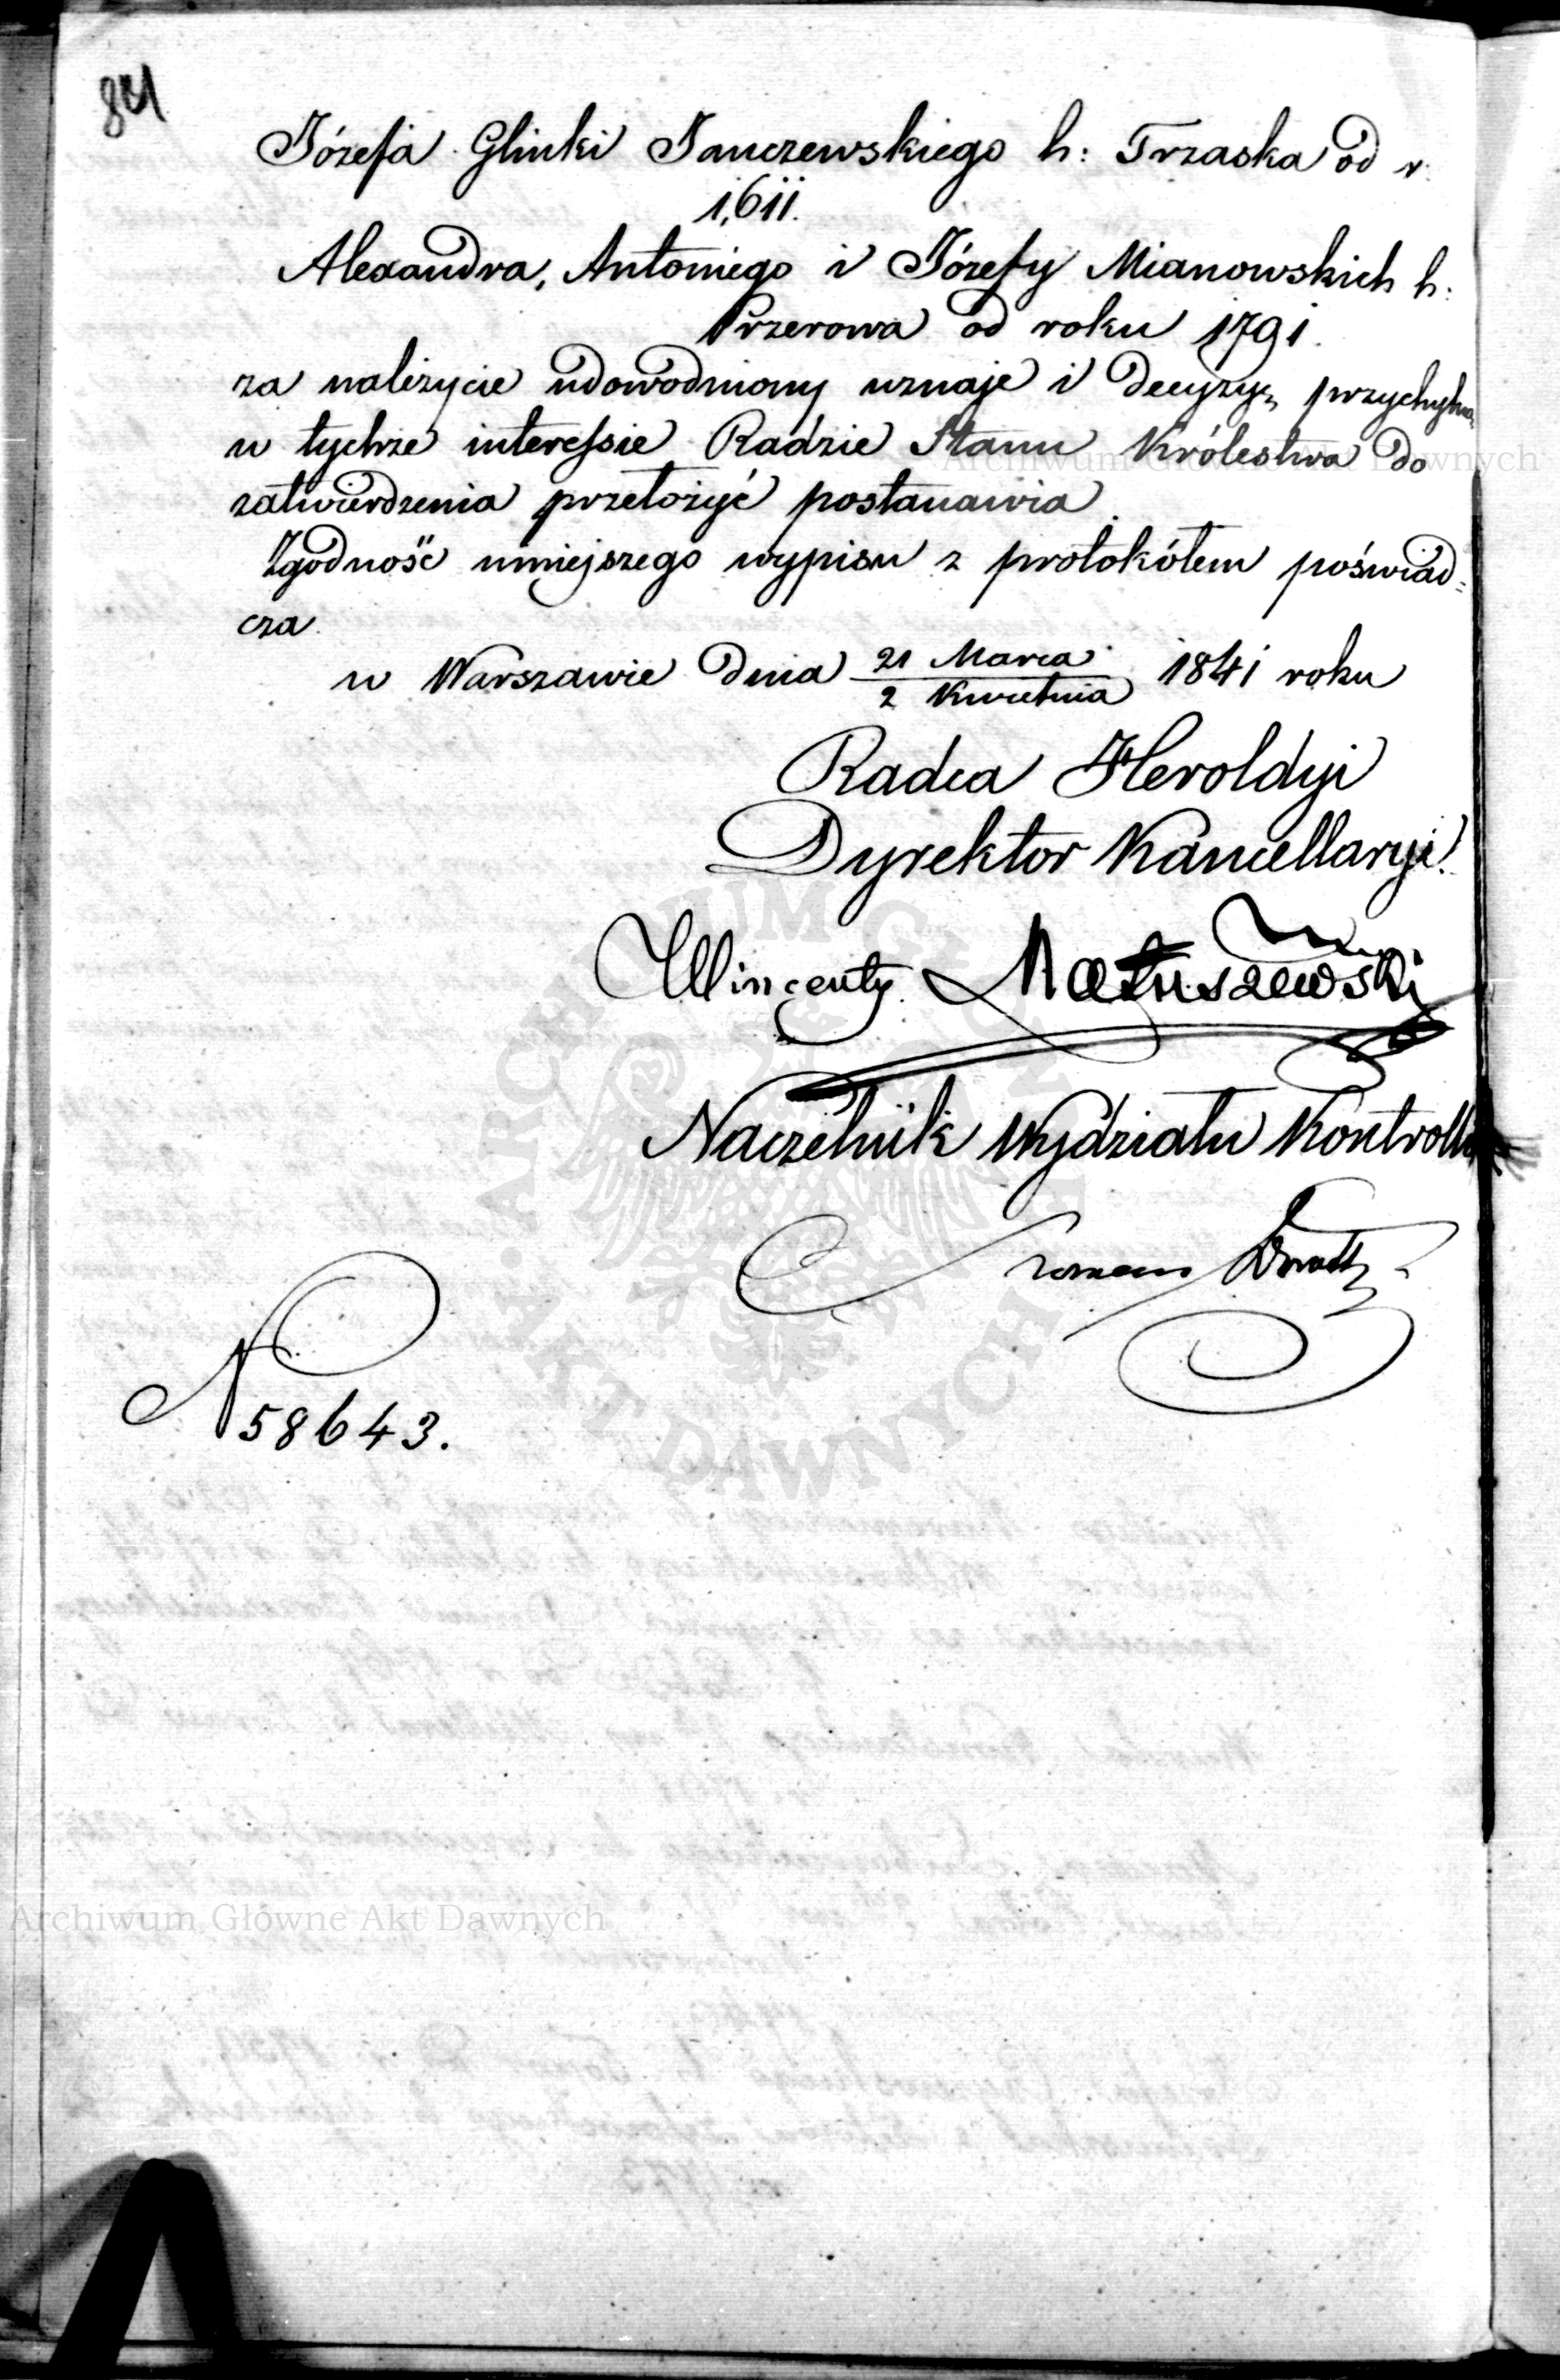 841
Józefa Glinki Janczewskiego h: Trzaska od r.
1,611.
Alexandra, Antoniego i Józefy Mianowskich h:
Przerowa od roku 1791.
za należycie udowodniony uznaje i decyzyą przychylną
w tychże interessie Radzie Stanu Królestwa do
zatwierdzenia przełożyć postanawia.
Zgodność niniejszego wypisu z protokółem poświad=
cza.
w Warszawie dnia 21 Marca / 2 Kwietnia 1841 roku
Radca Heroldyi
Dyrektor Kancellaryi.
Wincenty Matuszewski
Naczelnik Wydziału Kontrolli
Roman
N 58643.
Archiwum Główne Akt Dawnych
ARCHIWUM GŁÓWNE AKT DAWNYCH
Archiwum Główne Akt Dawnych